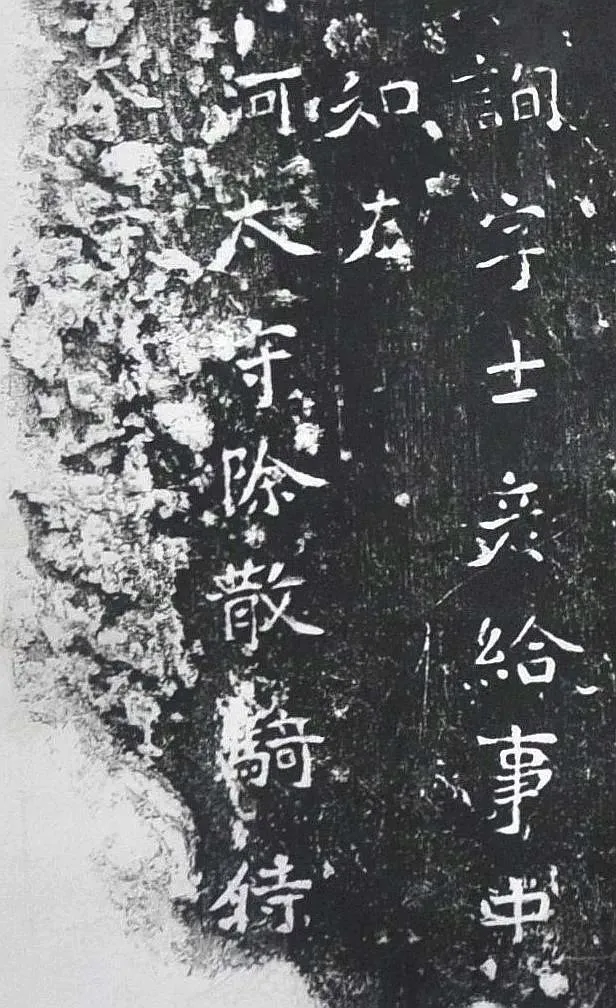 詢字士給事中
知左
河太守除散騎
太守